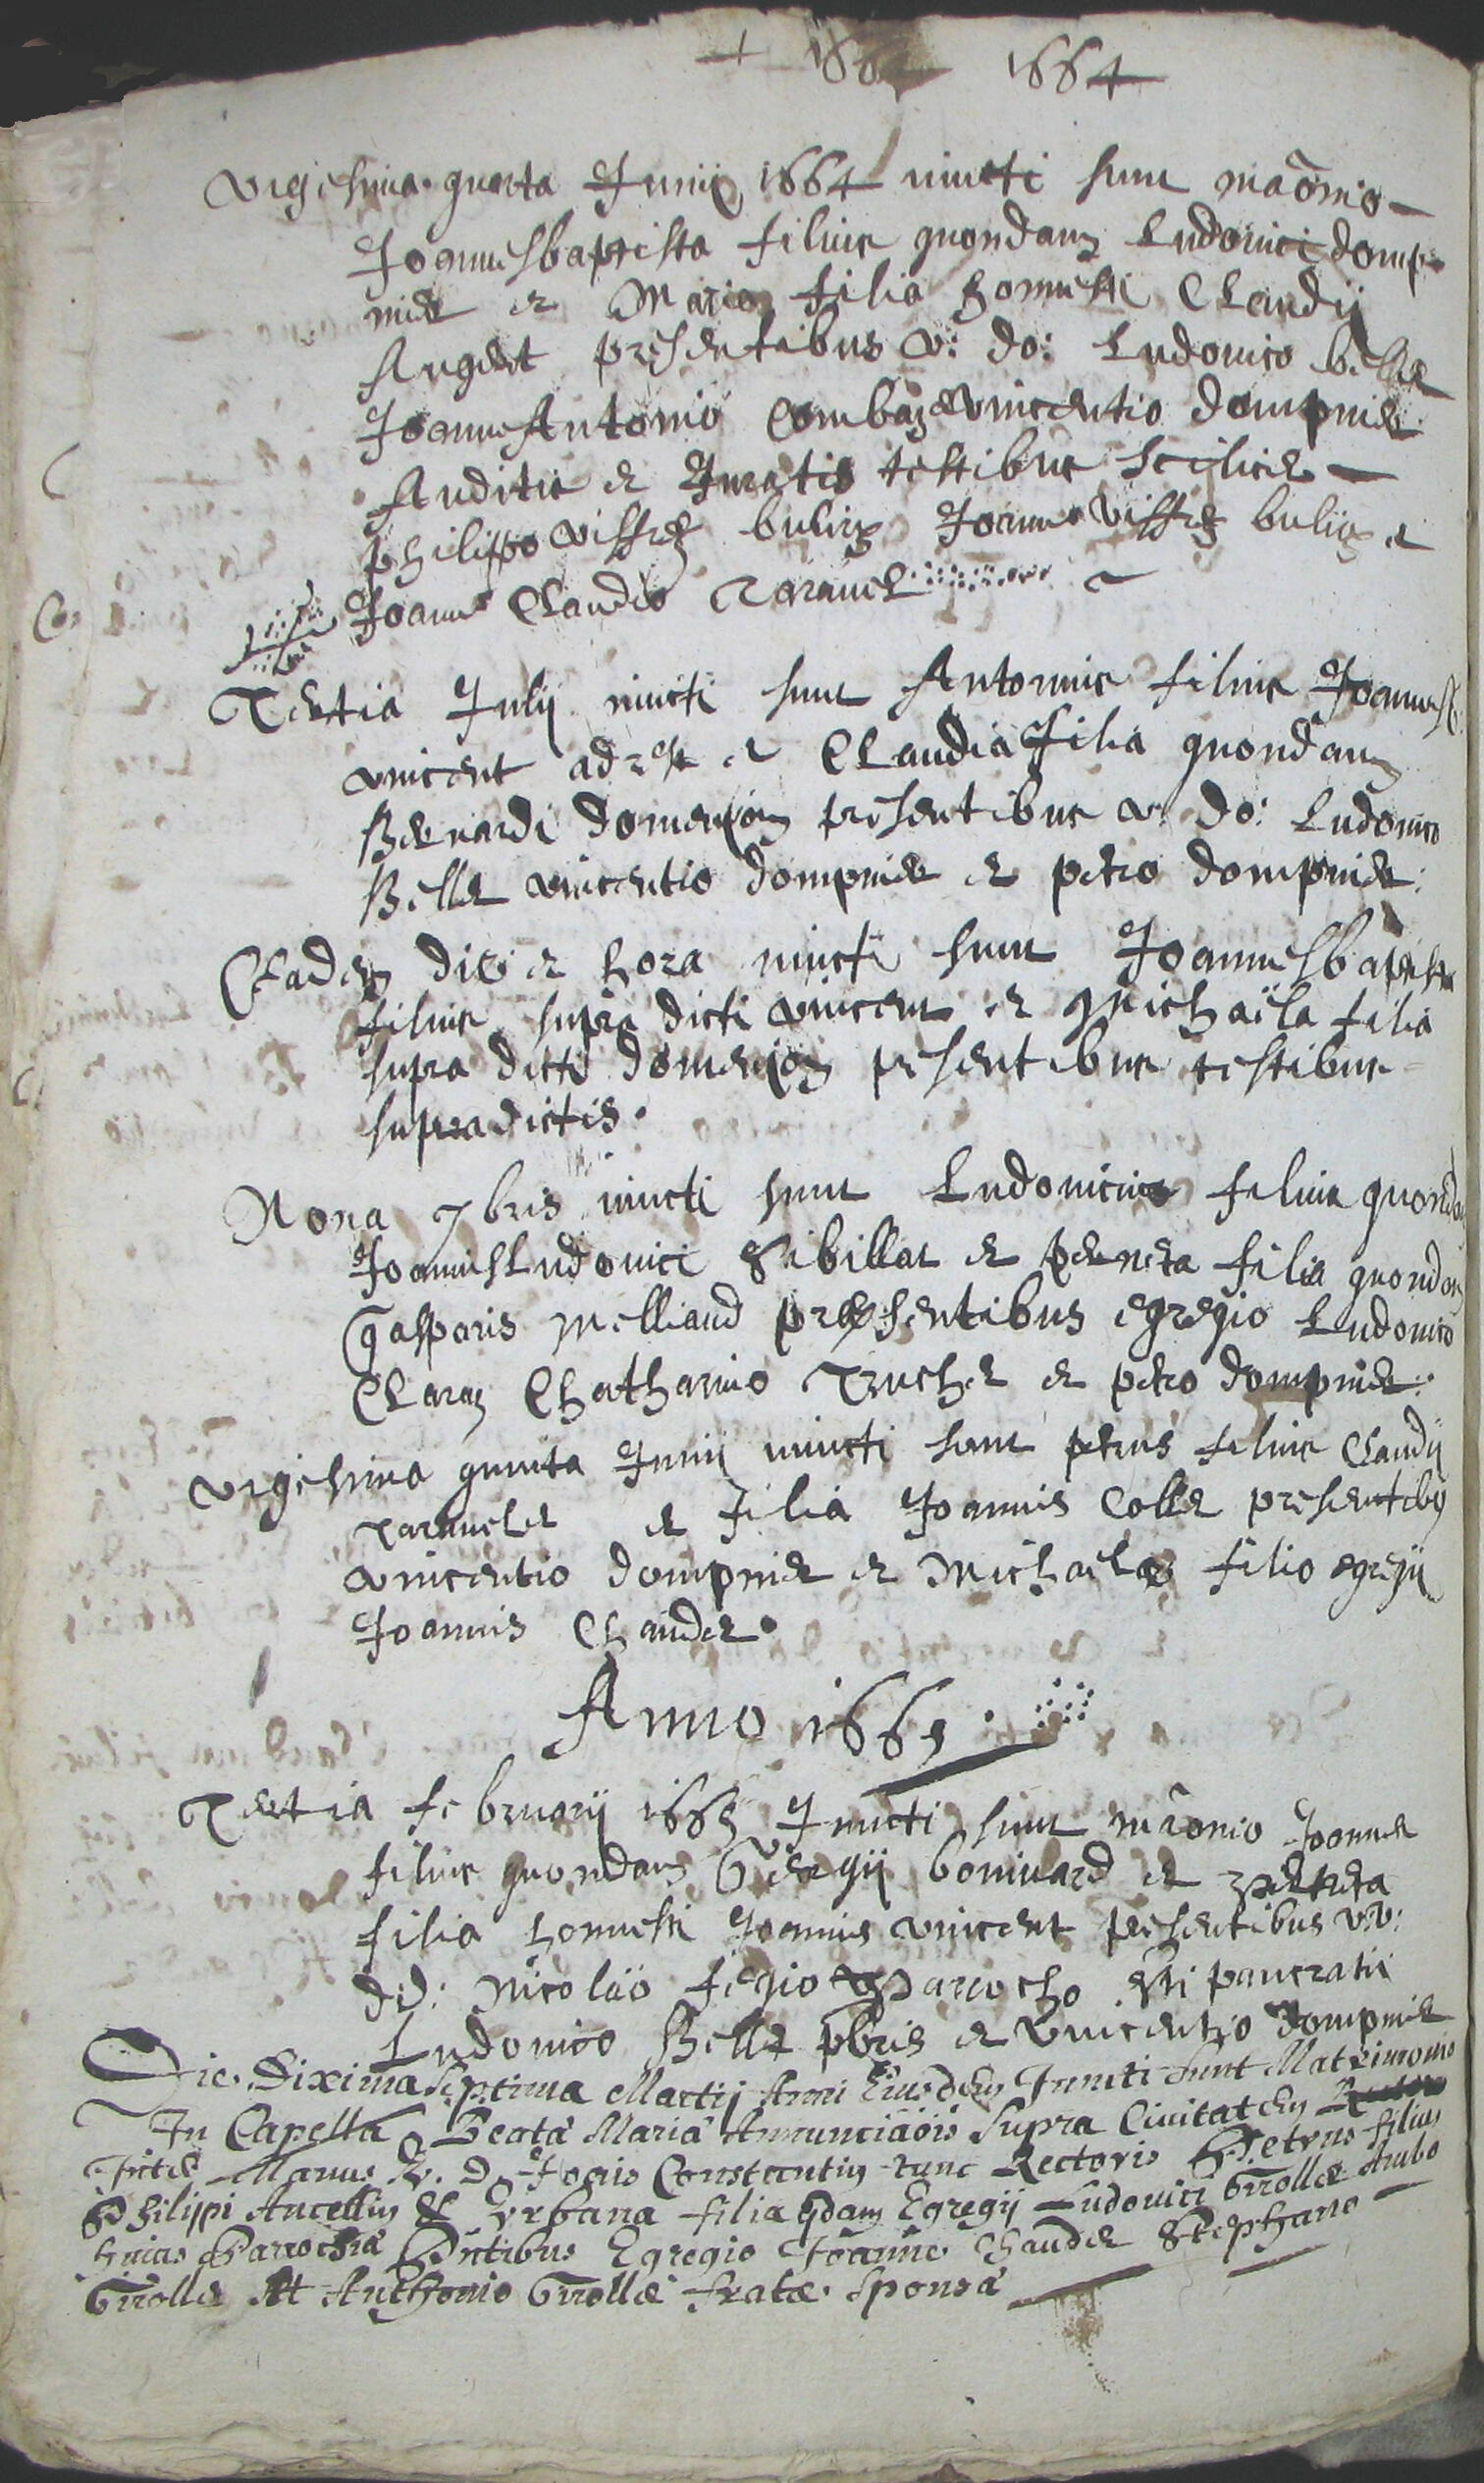 + 1664
Vigesima quarta Junii 1664 iuncti sunt mãonio
Joannesbaptista filius quondam Ludovici domp
nier et Maria filia honnesti Claudii
Augert presentibus v: do: Ludovico beller
Joanne Antonio Combaz et Vincentio dompnier
Auditis et Juratis testibus scilicet
philippo viffrey buliez Joanne viffrey buliez et
Joanne Claudio Taravel
Tertia Julii iuncti sunt Antonius filius Joannis
vincent et Claudia filia quondam
Bernardi domenjon presentibus v: do: Ludovico
Beller vincentio dompnier et petro dompnier:
Eadem die et hora iuncti sunt Joannesbaptista
filius supra dicti vincent et Michaëla filia
supra dicti domenjon presentibus testibus
supradictis.
Nona 7bris iuncti sunt Ludovicus filius quondam
Joannis Ludovici Sibillat et perneta filia quondam
Gasparis Melliand presentibus egregio Ludovico
Claraz Chatharino Truchet et petro dompnier:
Vigesima quinta Junii iuncti sunt petrus filius Claudii
Taravelet et filia Joannis Collet presentibus
vincentio dompnier et Michaele filio egregii
Joannis Chaudet.
Anno 1665.
Tertia februarii 1665 Juncti sunt mãonio Joannes
filius quondam Georgii bonivard et perneta
filia honnesti Joannis vincent presentibus v.v:
d.d: Nicoläo fegio parrocho sti pancratii
Ludovico Beller pbris et Vincentio dompnier
Die Dixima Septima Martij Anni Eiusdem Iuncti sunt Matrimonio
In Capella Beatæ Mariæ Annunciãois Supra Civitatem
Inter Manus R. D. Joãis Constantin tunc Rectoris Petrus filius
Philippi Ancellin Et Urbana filia qdam Egregii Ludovici Grollee Ambo
huius Parrochiæ Pntibus Egregio Joanne Chaudet Stephano
Grollee Et Anthonio Grollee fratre Sponsæ